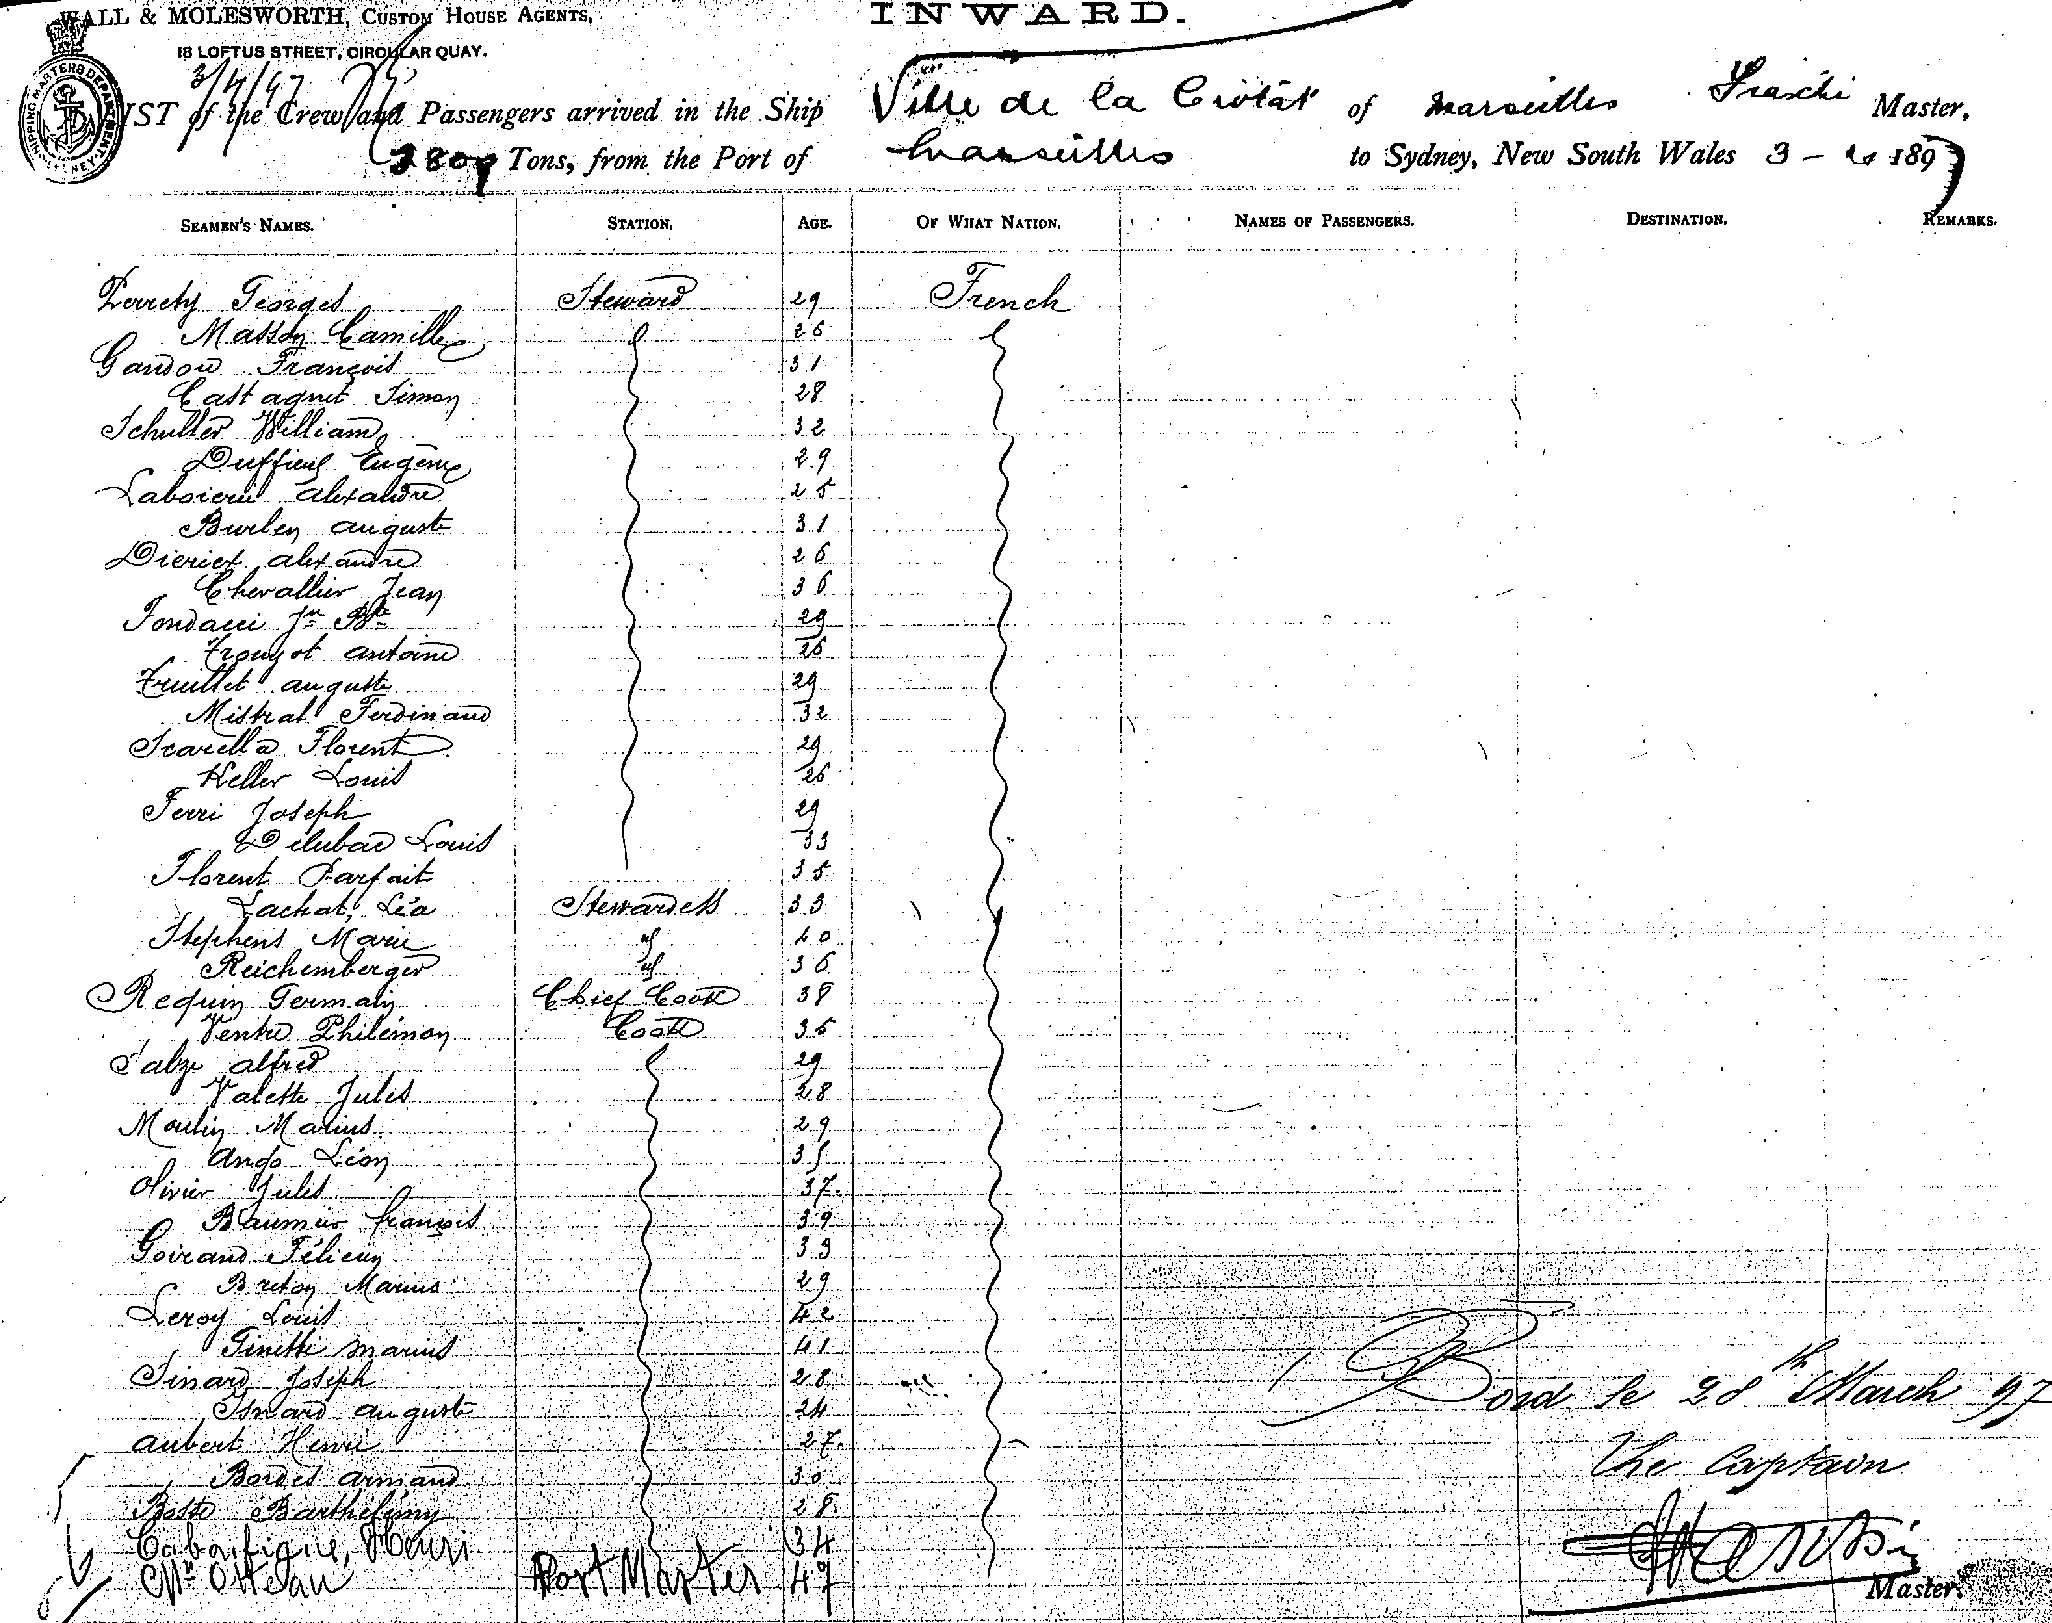 WALL & MOLESWORTH, CUSTOM HOUSE AGENTS,
18 LOFTUS STREET, CIRCULAR QUAY.
INWARD.
3/4/97
LIST of the Crew and Passengers arrived in the Ship Ville de la Ciotat of Marseilles Master,
3809 Tons, from the Port of Marseilles to Sydney, New South Wales 3 - 4 1897
SEAMEN'S NAMES. STATION. AGE. OF WHAT NATION. NAMES OF PASSENGERS. DESTINATION. REMARKS.
Georges Steward 29 French
Masson Camille 26
Gandou François 31
Castagnet Simon 28
Schuller William 32
Duffieul Eugène 29
Alexandre 25
Burlen Auguste 31
Dierick Alexandre 26
Chevallier Jean 36
Fondacci Jn Bte 29
Trougot Antoine 26
Truillet Auguste 29
Mistral Ferdinand 32
Scarella Florent 29
Keller Louis 26
Ferri Joseph 29
Delubac Louis 33
Florent Parfait 35
Lachat, Léa Stewardess 33
Stephens Marie " 40
Reichemberger " 36
Requin Germain Chief Cook 38
Ventre Philémon Cook 35
Salze Alfred 29
Valette Jules 28
Moulin Marius 29
Ango Léon 35
Olivier Jules 37
Baumier François 39
Goirand Félicien 33
Breton Marius 29
Leroy Louis 42
Finette Marius 41
Sinard Joseph 28
Isnard Auguste 24
Aubert Henri 27
Bordes Armand 30
Barthélémy 28
Henri 34
Mr Port Master 47
Bord le 28th March 97
The Captain
Master.